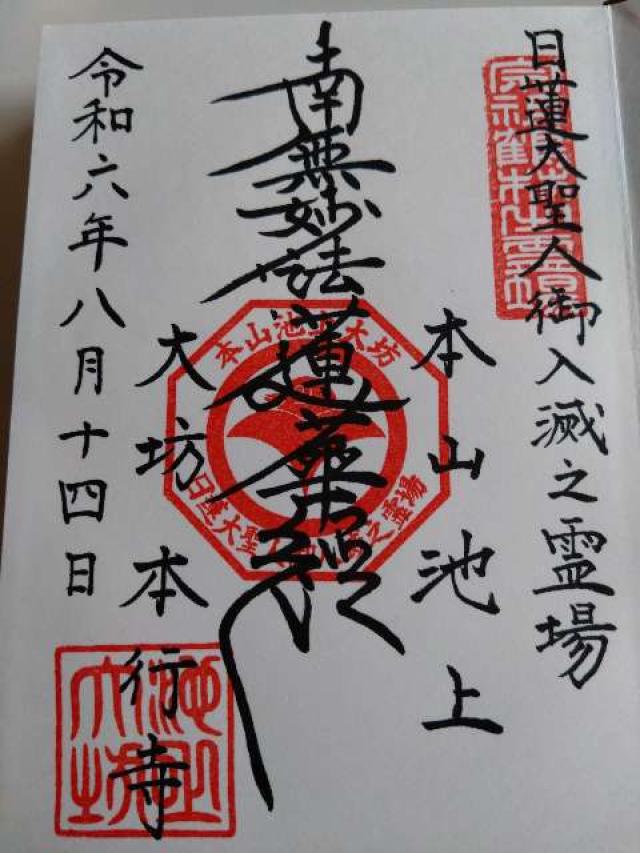 日蓮大聖人御入滅之霊場
本山池上
南無妙法蓮華経
大坊本行寺
令和六年八月十四日
本山池上大坊
日蓮大聖人御入滅之霊場
池上大坊